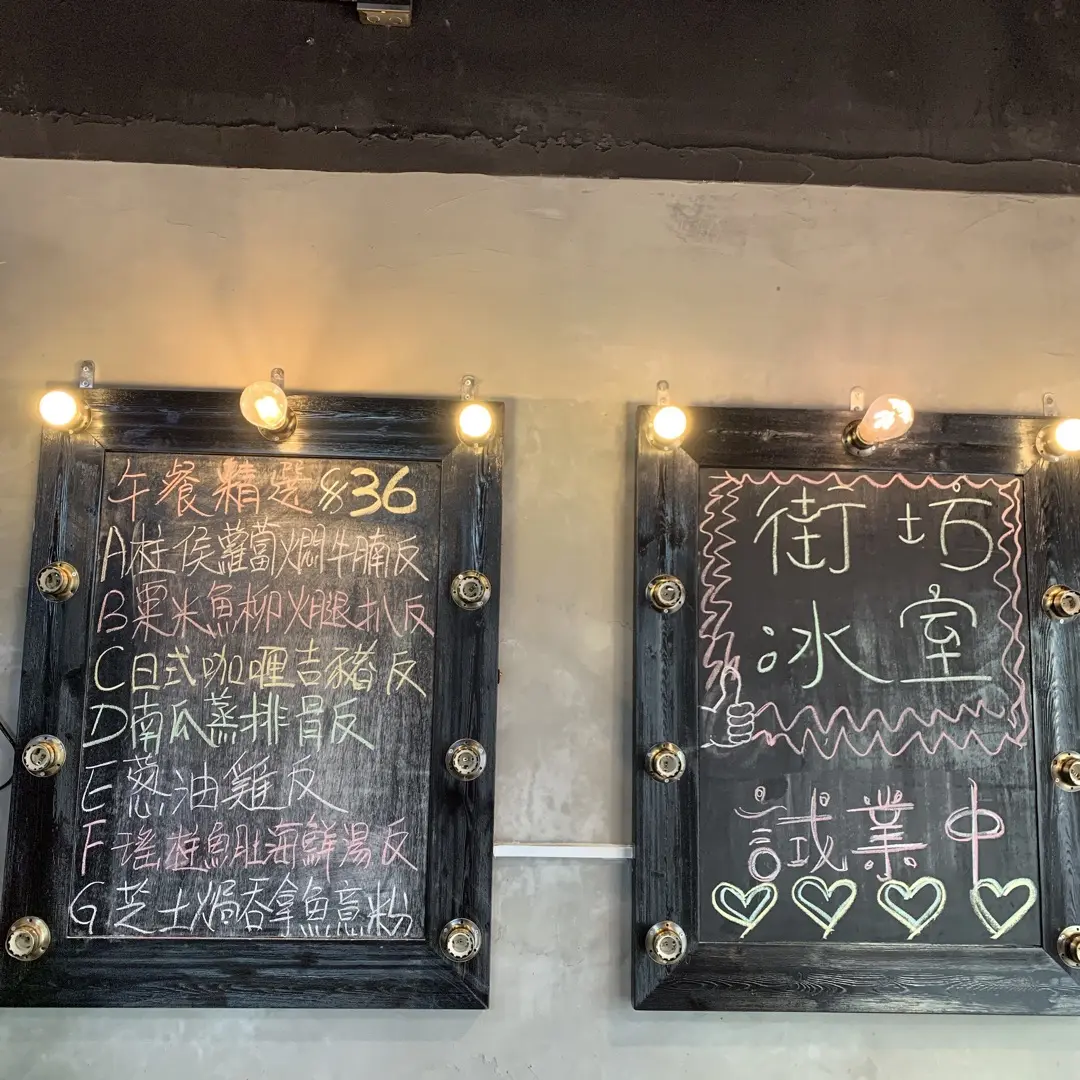 午餐精選$36
A柱侯蘿蔔炆牛腩反
B粟米魚柳火腿扒反
C日式咖喱吉豬反
D南瓜蒸排骨反
E葱油雞反
F瑤柱魚肚海鮮湯反
G芝士焗吞拿魚意粉
街坊
冰室
試業中